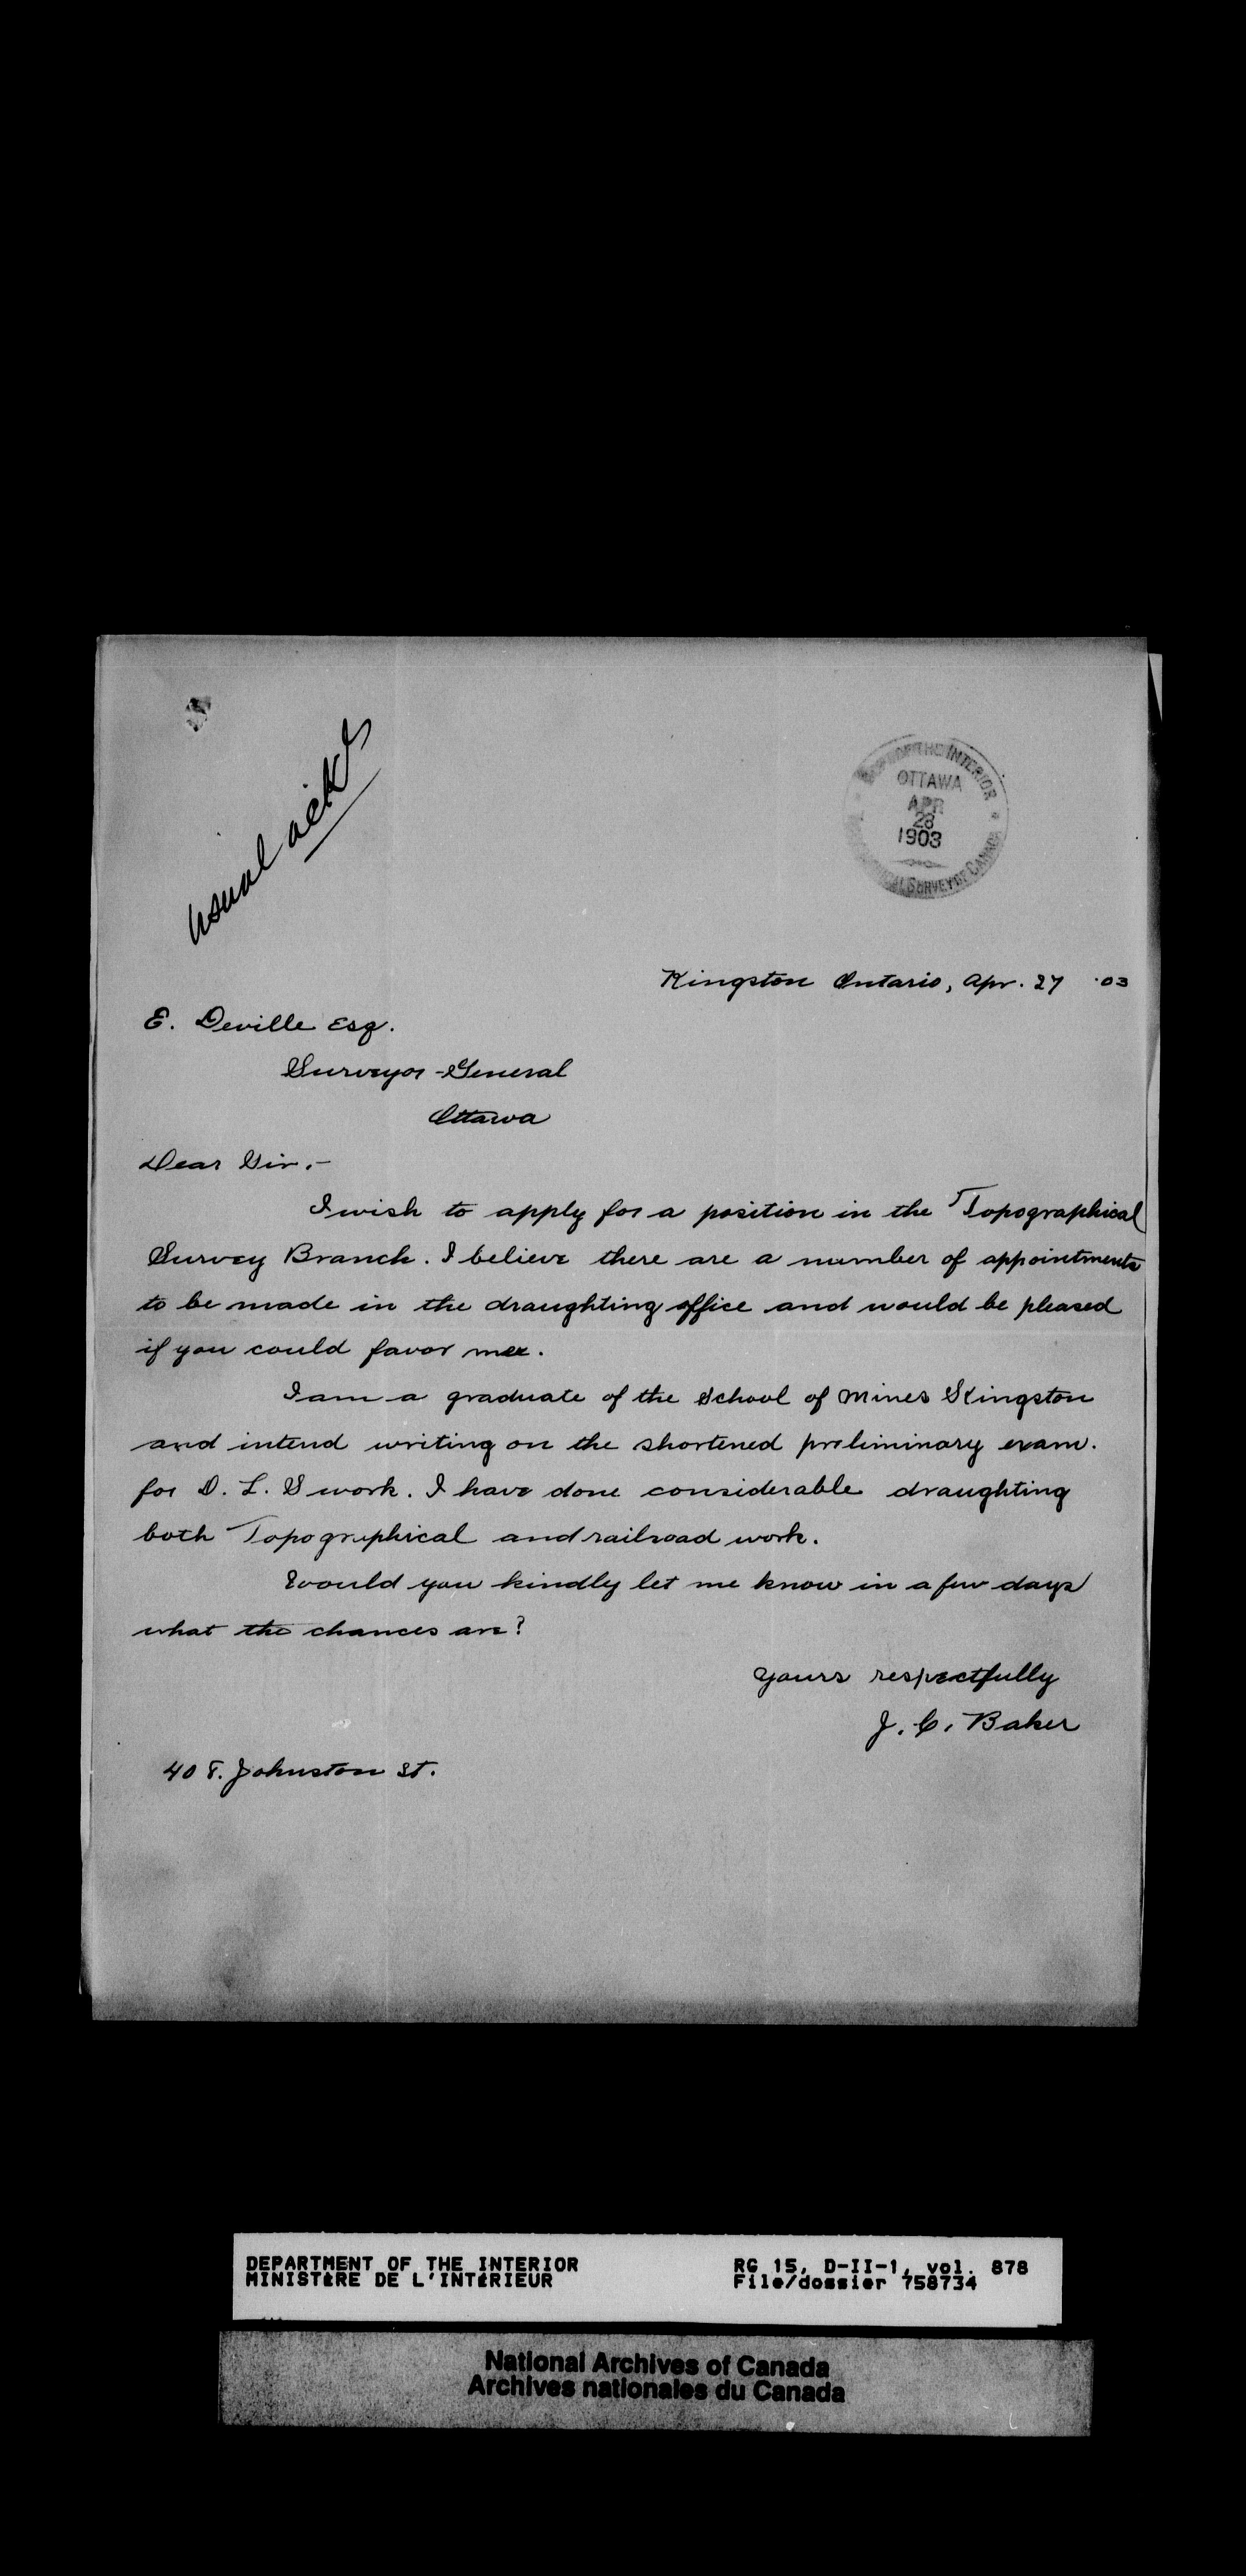 usual ack
DEPT OF THE INTERIOR
OTTAWA
APR
28
1903
SURVEY OF CANADA
Kingston Ontario, Apr. 27 '03
E. Deville Esq.
Surveyor-General
Ottawa
Dear Sir.-
I wish to apply for a position in the Topographical
Survey Branch. I believe there are a number of appointments
to be made in the draughting office and would be pleased
if you could favor me.
I am a graduate of the School of Mines Kingston
and intend writing on the shortened preliminary exam.
for D. L. S work. I have done considerable draughting
both Topographical and railroad work.
Would you kindly let me know in a few days
what the chances are?
Yours respectfully
J. C. Baker
408. Johnston St.
DEPARTMENT OF THE INTERIOR
MINISTÈRE DE L'INTÉRIEUR
RG 15, D-II-1, vol. 878
File/dossier 758734
National Archives of Canada
Archives nationales du Canada